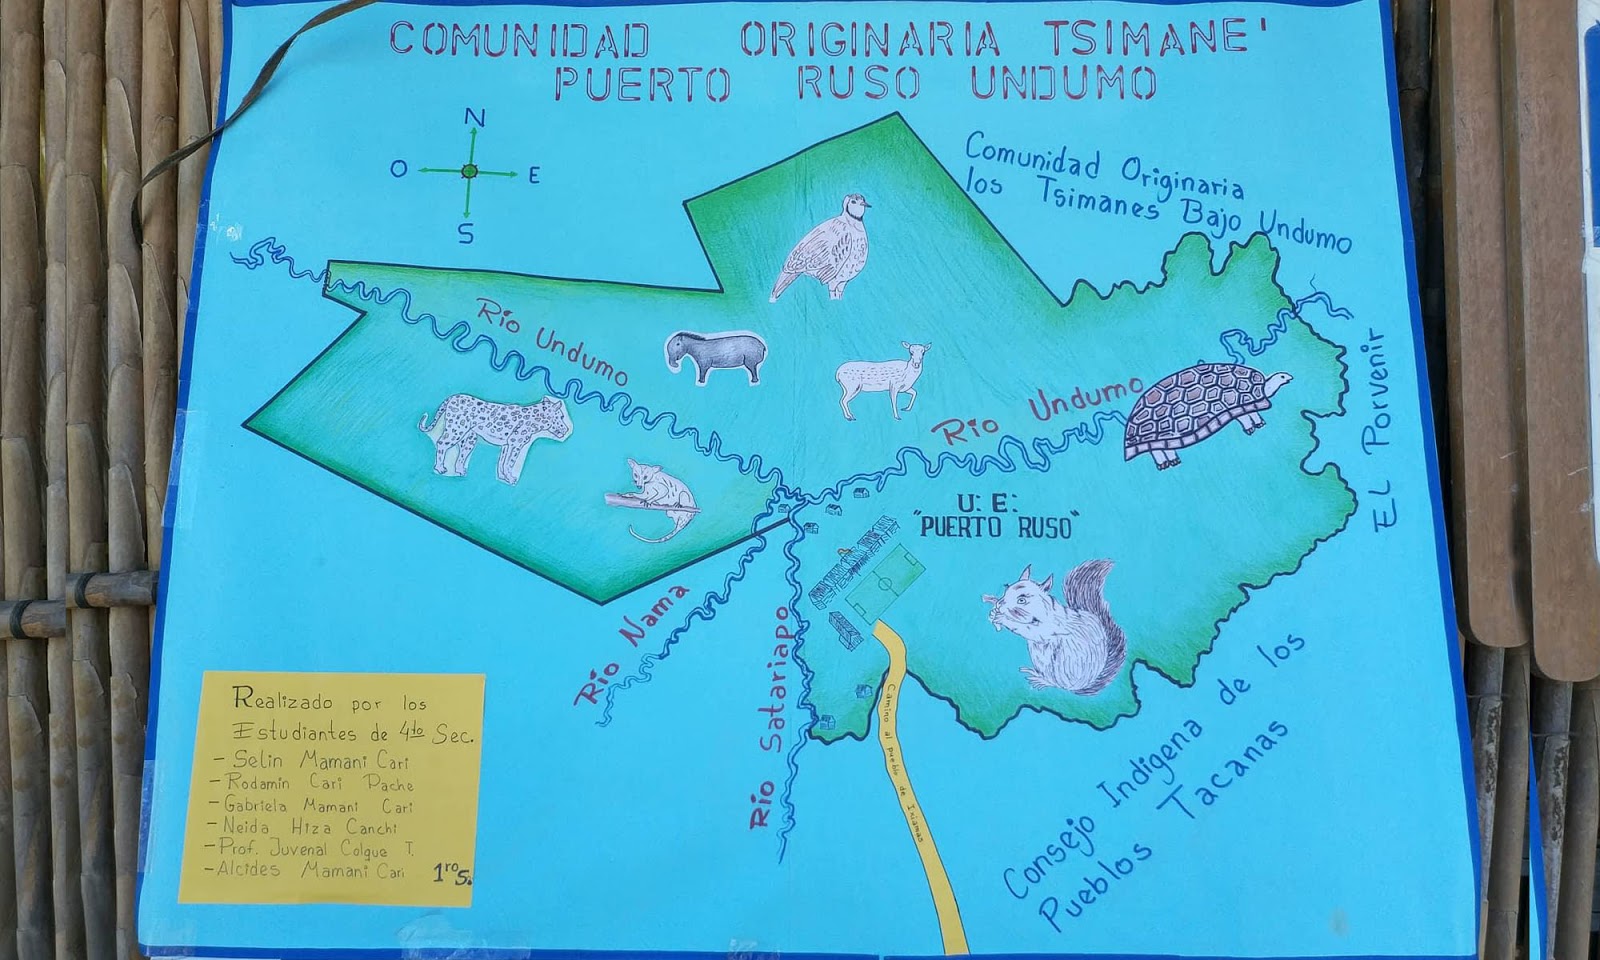 COMUNIDAD ORIGINARIA TSIMANE'
PUERTO RUSO UNDUMO
N
O
E
S
Comunidad Originaria
los Tsimanes Bajo Undumo
Río Undumo
Río Undumo
El Porvenir
U: E:
"PUERTO RUSO"
Río Nama
Río Satariapo
Camino al pueblo de Ixiamas
Consejo Indigena de los
Pueblos Tacanas
Realizado por los
Estudiantes de 4to Sec.
- Selin Mamani Cari
- Rodamin Cari Pache
- Gabriela Mamani Cari
- Neida Hiza Canchi
- Prof. Juvenal Colque T.
- Alcides Mamani Cari 1ro S.